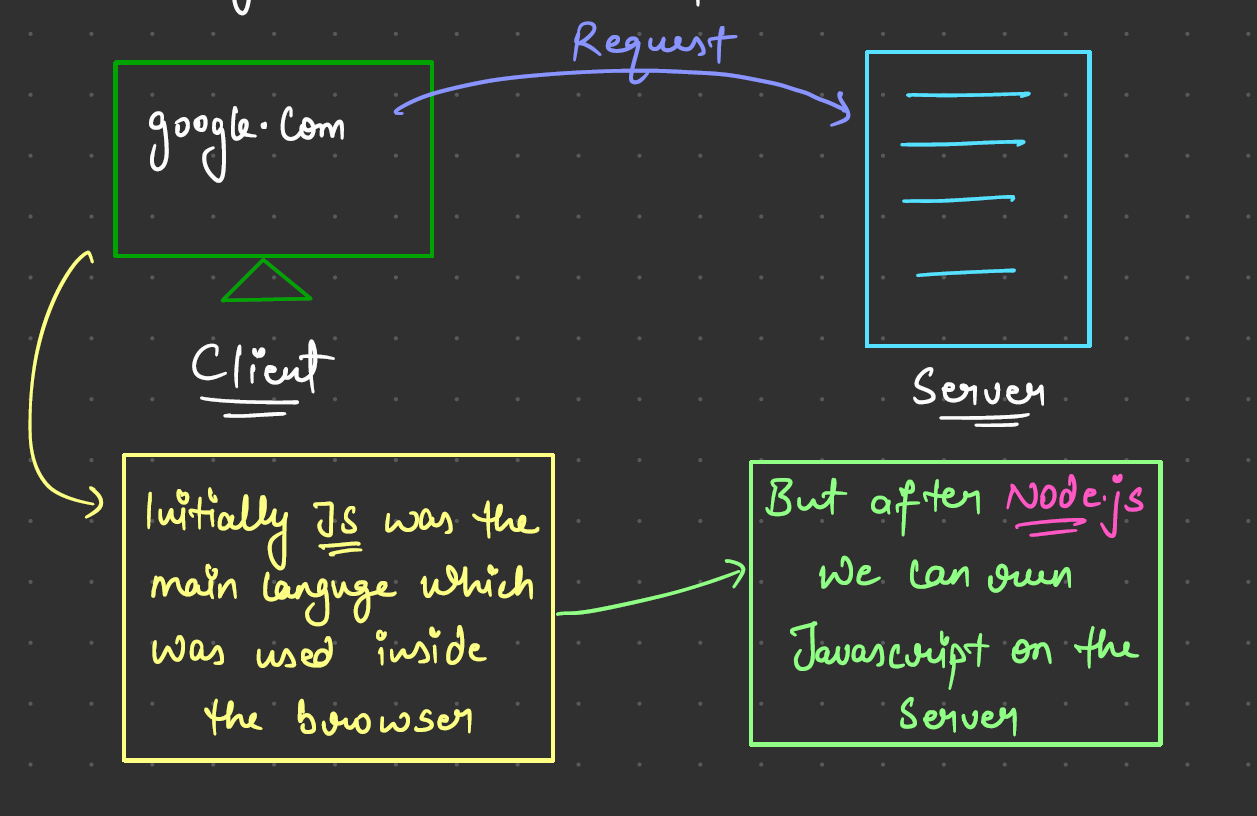 Request
google.com
Client
Server
Initially JS was the
main languge which
was used inside
the browser
But after Node.js
we can run
Javascript on the
Server